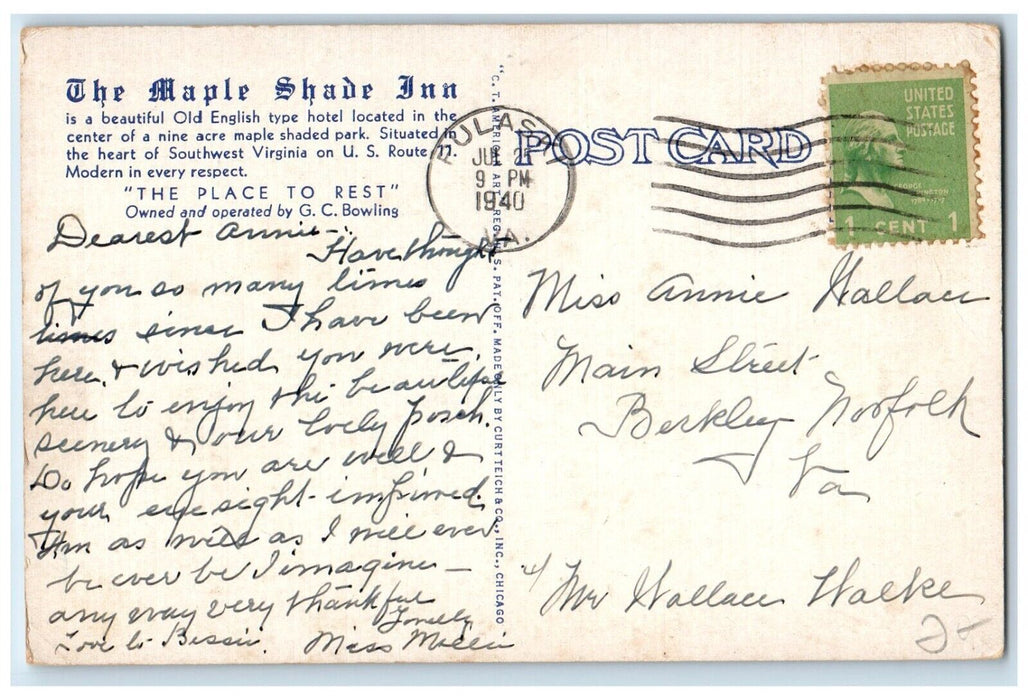 The Maple Shade Inn
is a beautiful Old English type hotel located in the
center of a nine acre maple shaded park. Situated in
the heart of Southwest Virginia on U. S. Route 11.
Modern in every respect.
"THE PLACE TO REST"
Owned and operated by G. C. Bowling
Dearest Annie -
Have thought
of you so many times
times since I have been
here, & wished you were
here to enjoy the beautiful
scenery & our lovely porch.
Do hope you are well &
your eye sight improved.
I'm as well as I will ever
be ever be I imagine -
any way very thankful
Lovelly
Love to Bessie. Miss
"C. T. AMERICAN ART" REG. U. S. PAT. OFF. MADE ONLY BY CURT TEICH & CO., INC., CHICAGO
POST CARD
PULASKI
JUL
9 PM
1940
VA.
UNITED
STATES
POSTAGE
GEORGE
WASHINGTON
1 CENT 1
Miss Annie Wallace
Main Street
Berkley Norfolk
Va
c/ Mr Wallace Walke